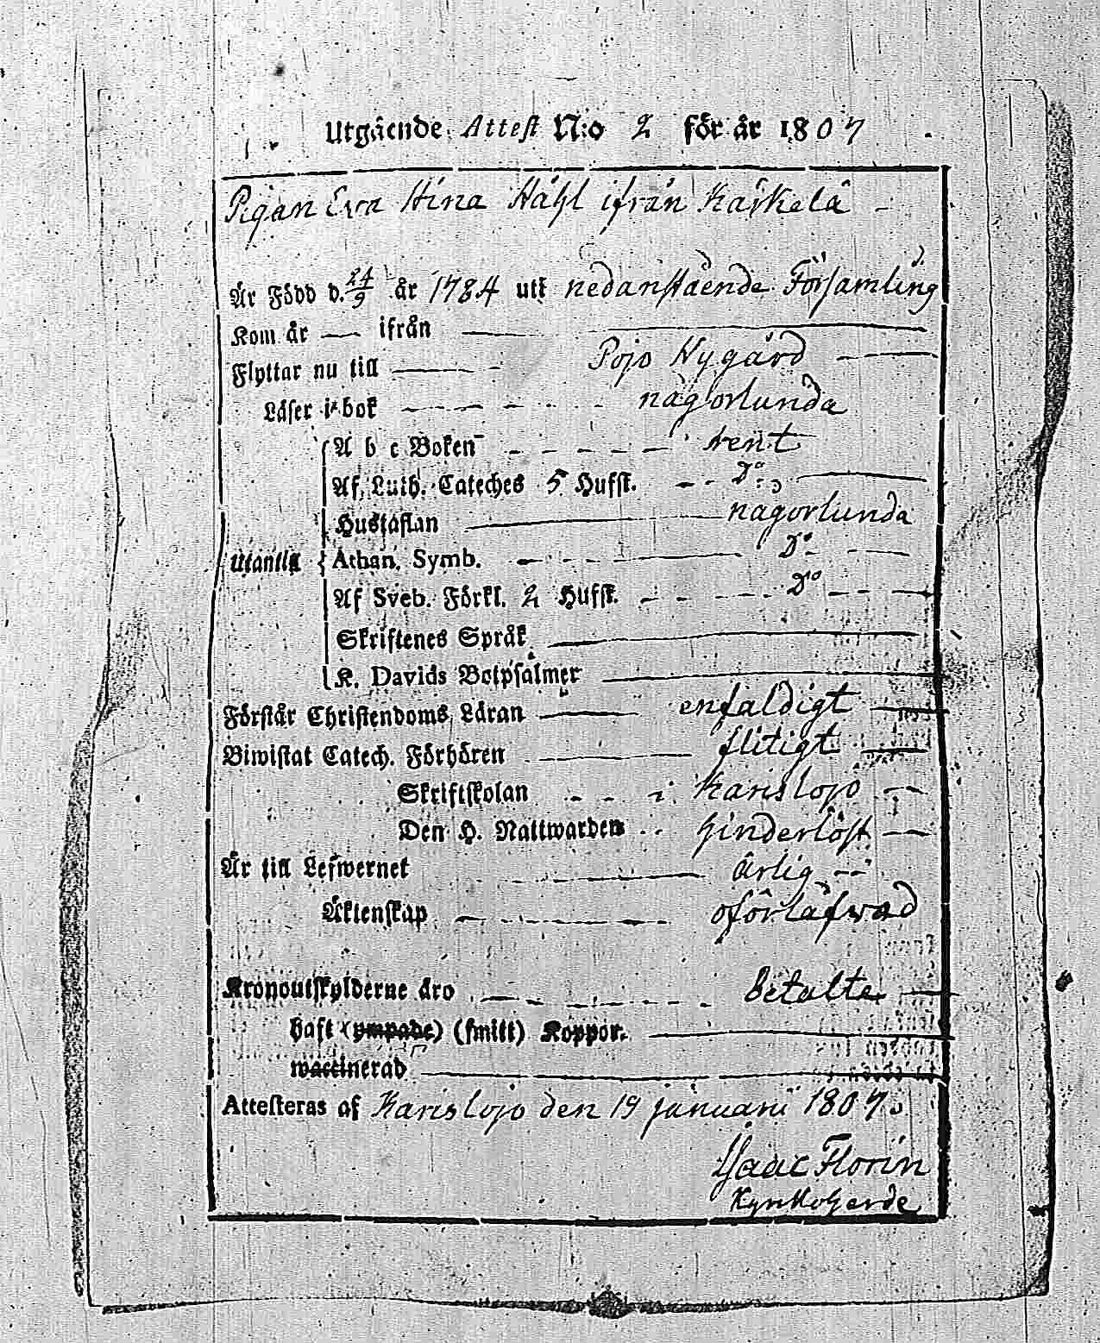 Utgående Attest N:o 2 för år 1807
Pigan Eva Stina Ståhl ifrån Kärkelä
Är Född d. 24/9 år 1784 uti nedanstående Församling
Kom år — ifrån —
Flyttar nu till — Pojo Nygård —
Läser i bok — någorlunda
A b c Boken — rent
Af Luth. Cateches 5 Hufst. — Do: —
Hustaflan — någorlunda
Utantill Athan. Symb. — Do —
Af Sveb. Förkl. 2 Hufst. — Do —
Skriftenes Språk —
K. Davids Botpsalmer —
Förstår Christendoms Läran — enfaldigt —
Biwistat Catech. Förhören — flitigt —
Skriftskolan - - i Karislojo —
Den H. Nattwarden - - hinderlöst —
Är till Lefwernet — ärlig --
Äktenskap — oförlåfwad
Kronoutskylderne äro — betalte —
haft (ympade) (smitt) Koppor. —
waccinerad —
Attesteras af Karislojo den 19 januarii 1807.
Isaac Florin
Kyrkoherde